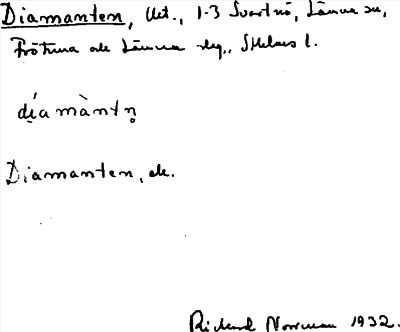 Diamanten, Uet., 1-3 Svartnö, Länna sn,
Frötuna o Länna slg., Sthlms l.
día màntn̥
Diamanten,
Rickard Norrman 1932.